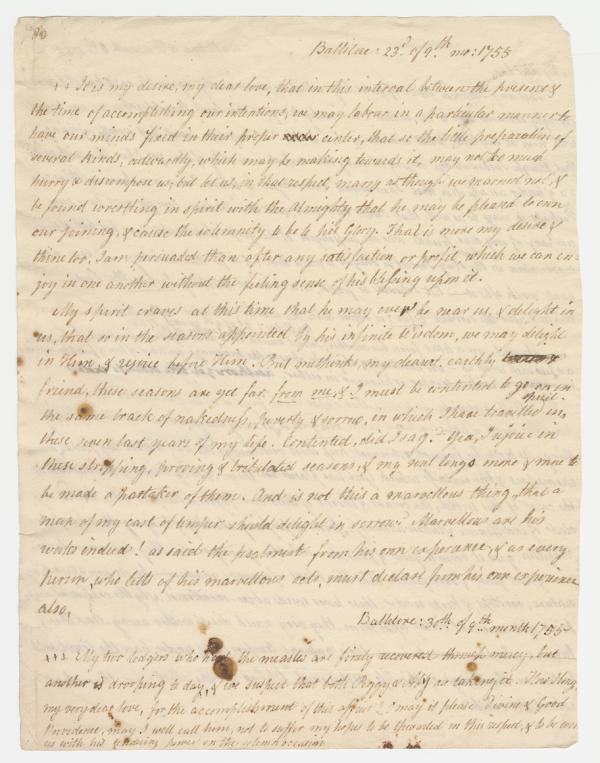 Ballitore: 23d of 9th mo: 1755
It is my desire, my dear love, that in this interval between the present &
the time of accomplishing our intentions, we may labour in a particular manner to
have our minds fixed in their proper center, that so the little preparation of
several kinds, outwardly, which may be making towards it, may not be much
hurry & discompose us, but let us, in that respect, marry as though we married not, &
be found wrestling in spirit with the Almighty that he may be pleased to own
our joining, & cause the solemnity to be to his Glory. That is more my desire &
thine too, I am persuaded than after any satisfaction or profit, which we can en-
joy in one another without the feeling sense of his blessing upon it.
My spirit craves at this time that he may ever be near us, & delight in
us, that so in the seasons appointed by his infinite Wisdom, we may delight
in Him, & rejoice before Him. But methinks, my dearest earthly
friend, these seasons are yet far from me, & I must be contented to go on in
spirit
the same track of nakedness, poverty & sorrow, in which I have travelled in,
these seven last years of my life. Contented, did I say? Yea, I rejoice in
these stripping, proving & tribulated seasons, & my soul longs more & more to
be made a partaker of them. And is not this a marvellous thing, that a
man of my cast of temper should delight in sorrow? Marvellous are his
works indeed! as said the psalmist from his own experience, & as every
one, who tells of his marvellous acts, must declare from his own experience
also.
Ballitore: 30th of 9th month 1755
My two lodgers who had the measles are finely recovered through mercy, but
another is drooping to day, & we suspect that both & are taking it. How I long,
my very dear love, for the accomplishment of this affair! O may it please divine & Good
Providence, may I well call him, not to suffer my hopes to be in this respect, & to be with
us with his power on the solemn occasion